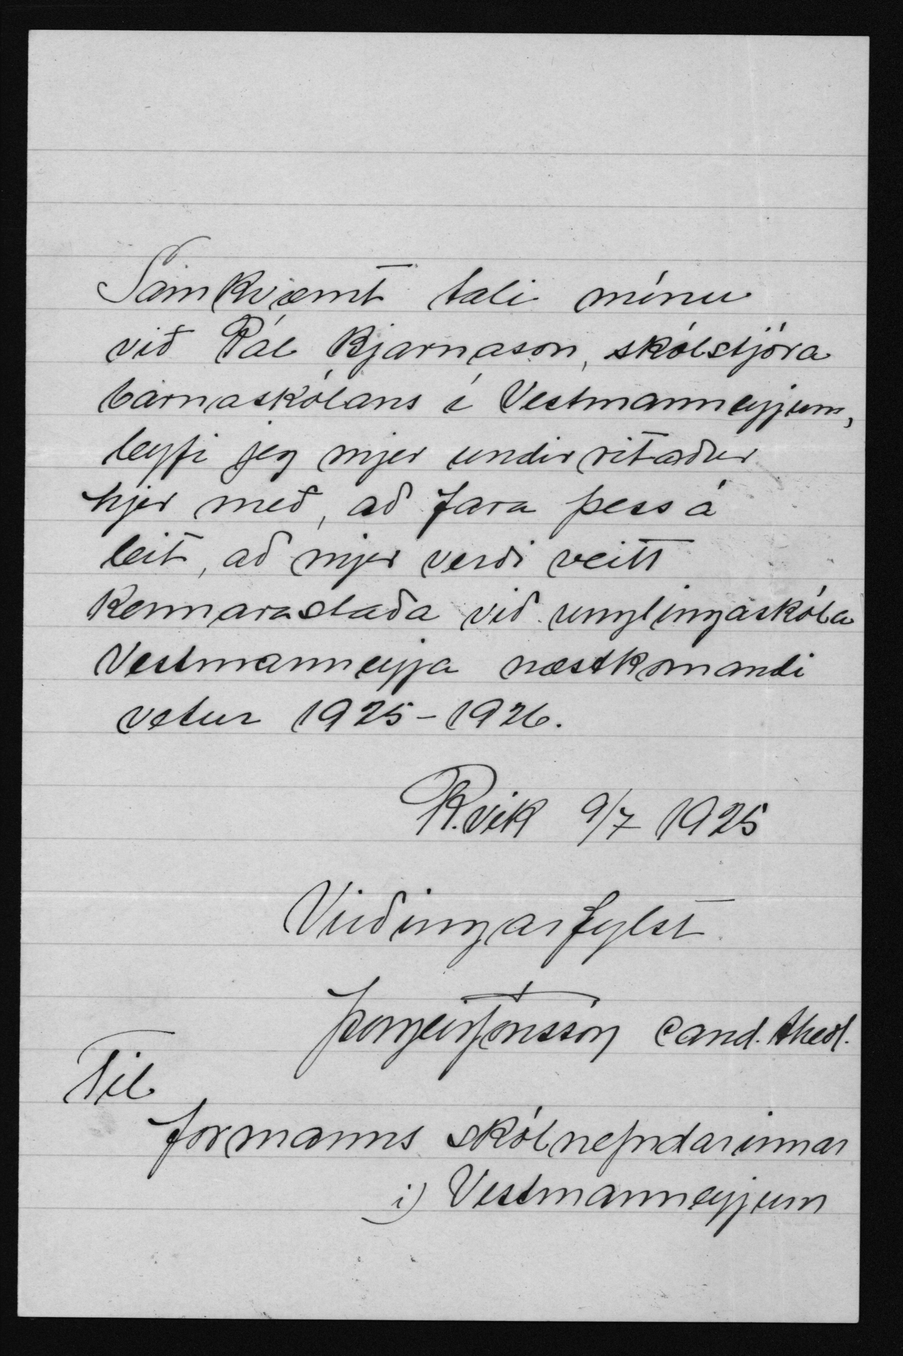 Samkvæmt tali mínu
við Pál Bjarnason, skólstjóra
barnaskólans í Vestmanneyjum,
leyfi jeg mjer undirritaður
hjer með, að fara þess á
leit, að mjer verði veitt
kennarastaða við unglingaskóla
Vestmanneyja næstkomandi
vetur 1925-1926.
R.vík 9/7 1925
Virðingarfylst
Þorgeir Jónsson cand. theol.
Til
formanns skólnefndarinnar
í Vestmanneyjum